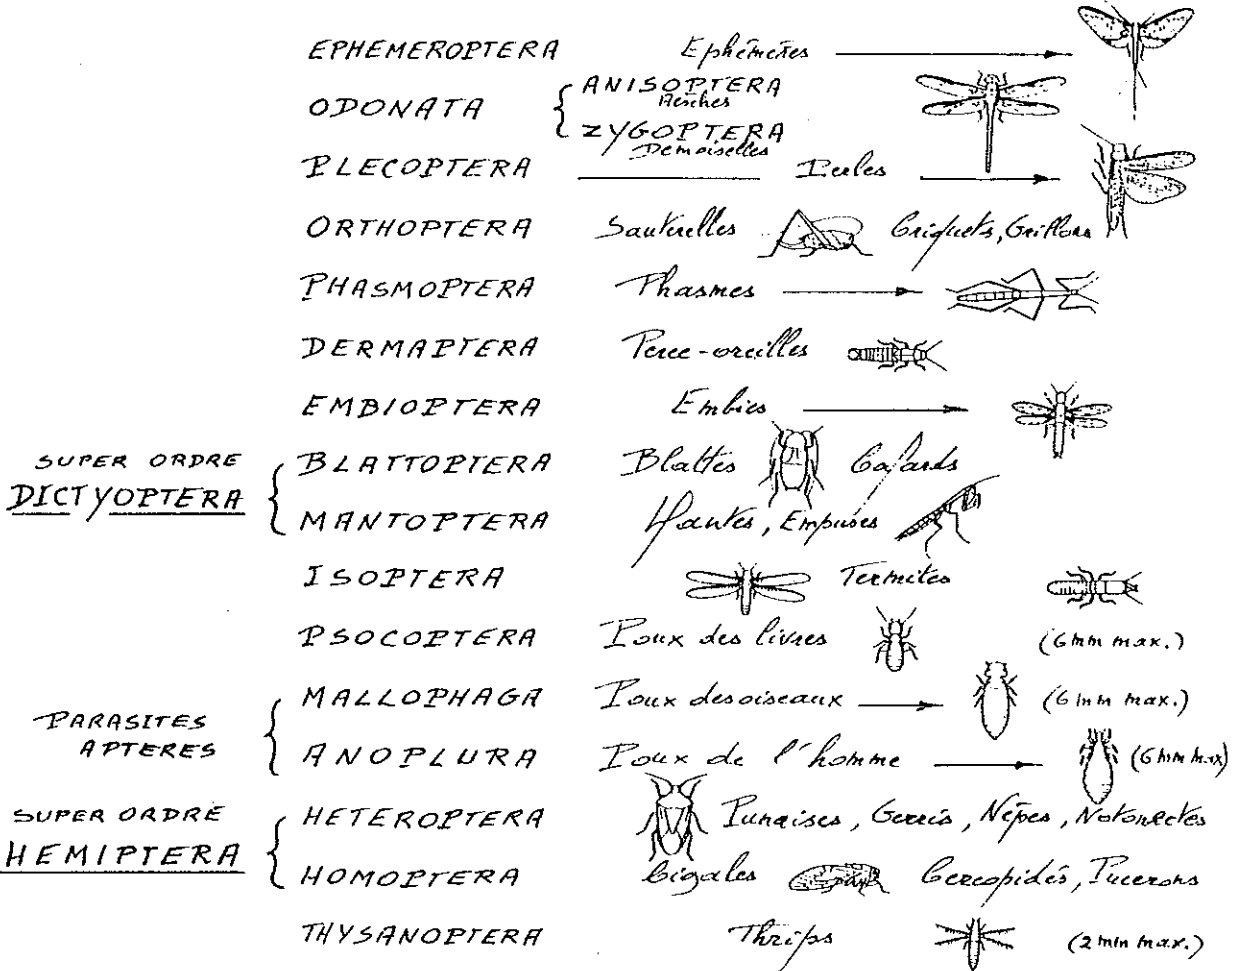 EPHEMEROPTERA Ephémères
ODONATA { ANISOPTERA
Aesches
ZYGOPTERA
Demoiselles
PLECOPTERA Perles
ORTHOPTERA Sauterelles Criquets, Grillons
PHASMOPTERA Phasmes
DERMAPTERA Perce-oreilles
EMBIOPTERA Embies
SUPER ORDRE
DICTYOPTERA {
BLATTOPTERA Blattes Cafards
MANTOPTERA Mantes, Empuses
ISOPTERA Termites
PSOCOPTERA Poux des livres (6mm max.)
PARASITES
APTERES {
MALLOPHAGA Poux des oiseaux (6mm max.)
ANOPLURA Poux de l'homme (6mm max)
SUPER ORDRE
HEMIPTERA {
HETEROPTERA Punaises, Gerris, Nèpes, Notonectes
HOMOPTERA Cigales Cercopidés, Pucerons
THYSANOPTERA Thrips (2mm max.)